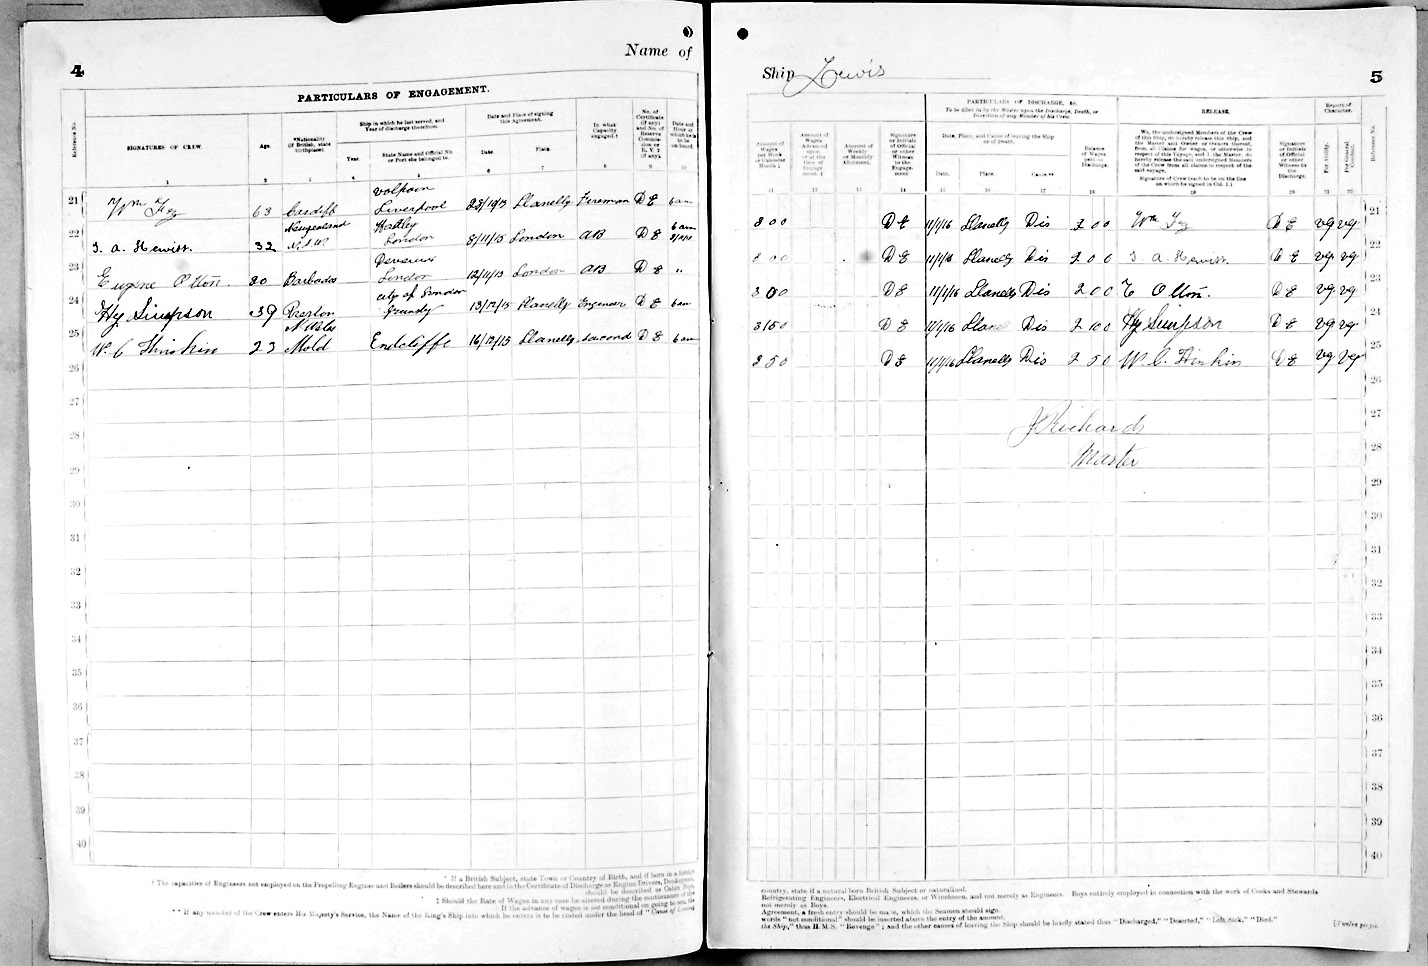 4
Name of
PARTICULARS OF ENGAGEMENT.
Reference No.
SIGNATURES OF CREW.
Age.
*Nationality (if British, state birthplace).
Ship in which he last served, and Year of discharge therefrom.
Year.
State Name and Official No. or Port she belonged to.
Date and Place of signing this Agreement.
Date.
Place.
In what Capacity engaged.†
No. of Certificate (if any) and No. of Reserve Commission or R.V.2 (if any).
Date and Hour at which he is to be on board
1 2 3 4 5 6 8 9 10
21 Wm Fry 63 Cardiff Volpoin Liverpool 28/10/15 Llanelly Fireman D E 6 am
22 T. A. Hewitt. 32 N.S.W. Hatley London 8/11/15 London AB D E 6 am 9/11/15
23 Eugene Otton. 20 Barbados London 12/11/15 London AB D E "
24 Hy Simpson 39 Preston City of London Grimsby 13/12/15 Llanelly Engineer D E 6 am
25 W. C. Hinkin 23 N Wales Mold Endcliffe 16/12/15 Llanelly second D E 6 am
26
27
28
29
30
31
32
33
34
35
36
37
38
39
40
* If a British Subject, state Town or Country of Birth, and if born in a foreign
† The capacities of Engineers not employed on the Propelling Engines and Boilers should be described here and in the Certificate of Discharge as Engine Drivers, Donkeymen,
should be described as Cabin Boys,
‡ Should the Rate of Wages in any case be altered during the continuance of the
If the advance of wages is not conditional on going to sea, the
** If any member of the Crew enters His Majesty's Service, the Name of the King's Ship into which he enters is to be stated under the head of "Cause of Leaving
Ship Lewis
5
PARTICULARS OF DISCHARGE, &c.
To be filled in by the Master upon the Discharge, Death, or Desertion of any Member of his Crew.
RELEASE.
Report of Character.
Amount of Wages per Week or Calendar Month ‡
Amount of Wages Advanced upon or at the time of Engagement.‡
Amount of Weekly or Monthly Allotment.
Signature or Initials of Official or other Witness to the Engagement
Date, Place, and Cause of leaving the Ship or of Death.
Date.
Place.
Cause.**
Balance of Wages paid on Discharge.
We, the undersigned Members of the Crew of this Ship, do hereby release this ship, and the Master and Owner or Owners thereof, from all Claims for wages, or otherwise in respect of this Voyage, and I, the Master, do hereby release the said undersigned Members of the Crew from all claims in respect of the said voyage.
Signature of Crew (each to be on the line on which he signed in Col. 1.)
Signature or Initials of Official or other Witness to the Discharge.
For Ability.
For General Conduct.
Reference No.
11 12 13 14 15 16 17 18 19 20 21 22
8 0 0 D E 11/1/16 Llanelly Dis 2 0 0 Wm Fry D E vg vg 21
8 0 0 D E 11/1/16 Llanelly Dis 2 0 0 T A Hewitt D E vg vg 22
8 0 0 D E 11/1/16 Llanelly Dis 2 0 0 E Otton. D E vg vg 23
D E 11/1/16 Llanelly Dis 2 10 0 Hy Simpson D E vg vg 24
8 5 0 D E 11/1/16 Llanelly Dis 2 5 0 W. C. Hinkin D E vg vg 25
26
27
J Richards
28
Master
29
30
31
32
33
34
35
36
37
38
39
40
country, state if a natural born British Subject or naturalised.
Refrigerating Engineers, Electrical Engineers, or Winchmen, and not merely as Engineers. Boys entirely employed in connection with the work of Cooks and Stewards
not merely as Boys.
Agreement, a fresh entry should be made, which the Seamen should sign.
words "not conditional" should be inserted above the entry of the amount.
the Ship," thus H.M.S. "Revenge"; and the other causes of leaving the Ship should be briefly stated thus "Discharged," "Deserted," "Left Sick," "Died."
[Twelve pages.